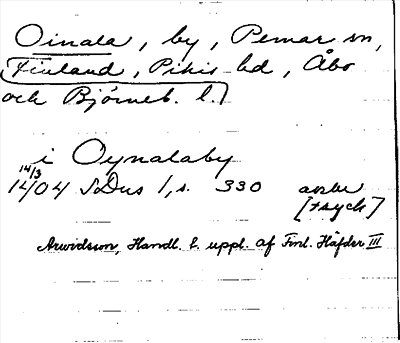 Oinala, by, Pemar sn,
Finland, Pikis hd, Åbo
och Björneb. l.
i Oynalaby
14/3
1404 SDns 1, s. 330 avskr
[tryck]
Arwidsson, Handl. t. uppl. af Finl. Häfder III